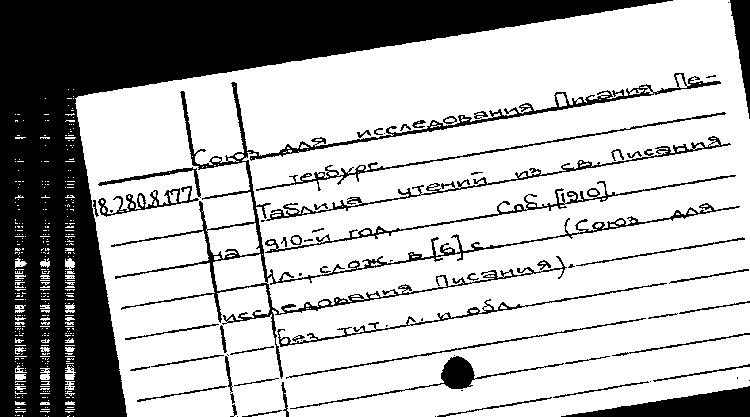 Союз для исследования Писания Пе-
тербург.
18.280.8.177
Таблица чтений из св. Писания
на 1910-й год. Спб., [1910].
1 л., слож. в [6] с. (Союз для
исследования Писания).
Без тит. л. и обл.